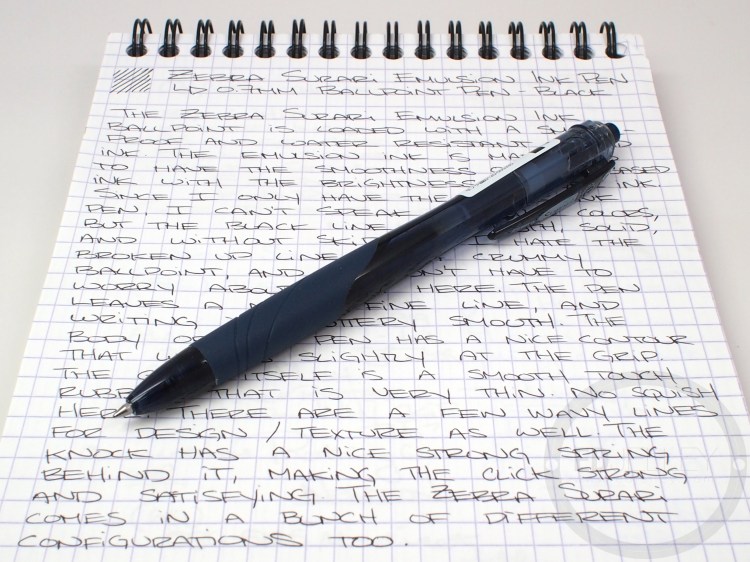 ZEBRA SURARI EMULSION INK PEN
LD 0.7MM BALLPOINT PEN - BLACK
THE ZEBRA SURARI EMULSION INK
BALLPOINT IS LOADED WITH A
PROOF AND WATER RESISTANT
INK. THE EMULSION INK IS
TO HAVE THE SMOOTHNESS BASED
INK WITH THE BRIGHTNESS INK.
SINCE I ONLY HAVE THE
PEN, I CAN'T SPEAK COLORS,
BUT THE BLACK LINE SOLID,
AND WITHOUT I HATE THE
BROKEN UP LINE CRUMMY
BALLPOINT, AND HAVE TO
WORRY HERE. THE PEN
LEAVES A FINE LINE, AND
WRITING SMOOTH. THE
BODY PEN HAS A NICE CONTOUR
THAT SLIGHTLY AT THE GRIP.
THE ITSELF IS A SMOOTH TOUCH
THAT IS VERY THIN. NO SQUISH
THERE ARE A FEW WAVY LINES
FOR DESIGN / TEXTURE AS WELL. THE
KNOCK HAS A NICE STRONG SPRING
BEHIND IT, MAKING THE CLICK STRONG
AND SATISFYING. THE ZEBRA SURARI
COMES IN A BUNCH OF DIFFERENT
CONFIGURATIONS TOO.